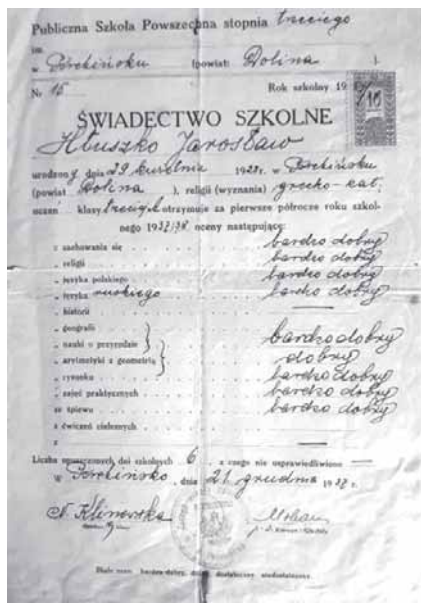 Publiczna Szkoła Powszechna stopnia trzeciego
im.
w (powiat: Dolina ).
Nr 15 Rok szkolny 19
10
ŚWIADECTWO SZKOLNE
Hłuszko Jarosław
urodzony dnia 29 kwietnia 1928 r. w
(powiat Dolina ), religii (wyznania) grecko-kat.
uczeń klasy trzeciej otrzymuje za pierwsze półrocze roku szkol-
nego 1937/38 oceny następujące:
z zachowania się bardzo dobry
„ religii bardzo dobry
„ języka polskiego bardzo dobry
„ języka ruskiego bardzo dobry
„ historii
„ geografii
„ nauki o przyrodzie bardzo dobry
„ arytmetyki z geometrią dobry
„ rysunku bardzo dobry
„ zajęć praktycznych bardzo dobry
ze śpiewu bardzo dobry
z ćwiczeń cielesnych
z
Liczba opuszczonych dni szkolnych 6, z czego nie usprawiedliwiono
W , dnia 21 grudnia 1937 r.
N. Klinowska
Skala ocen: bardzo dobry, dobry, dostateczny, niedostateczny.